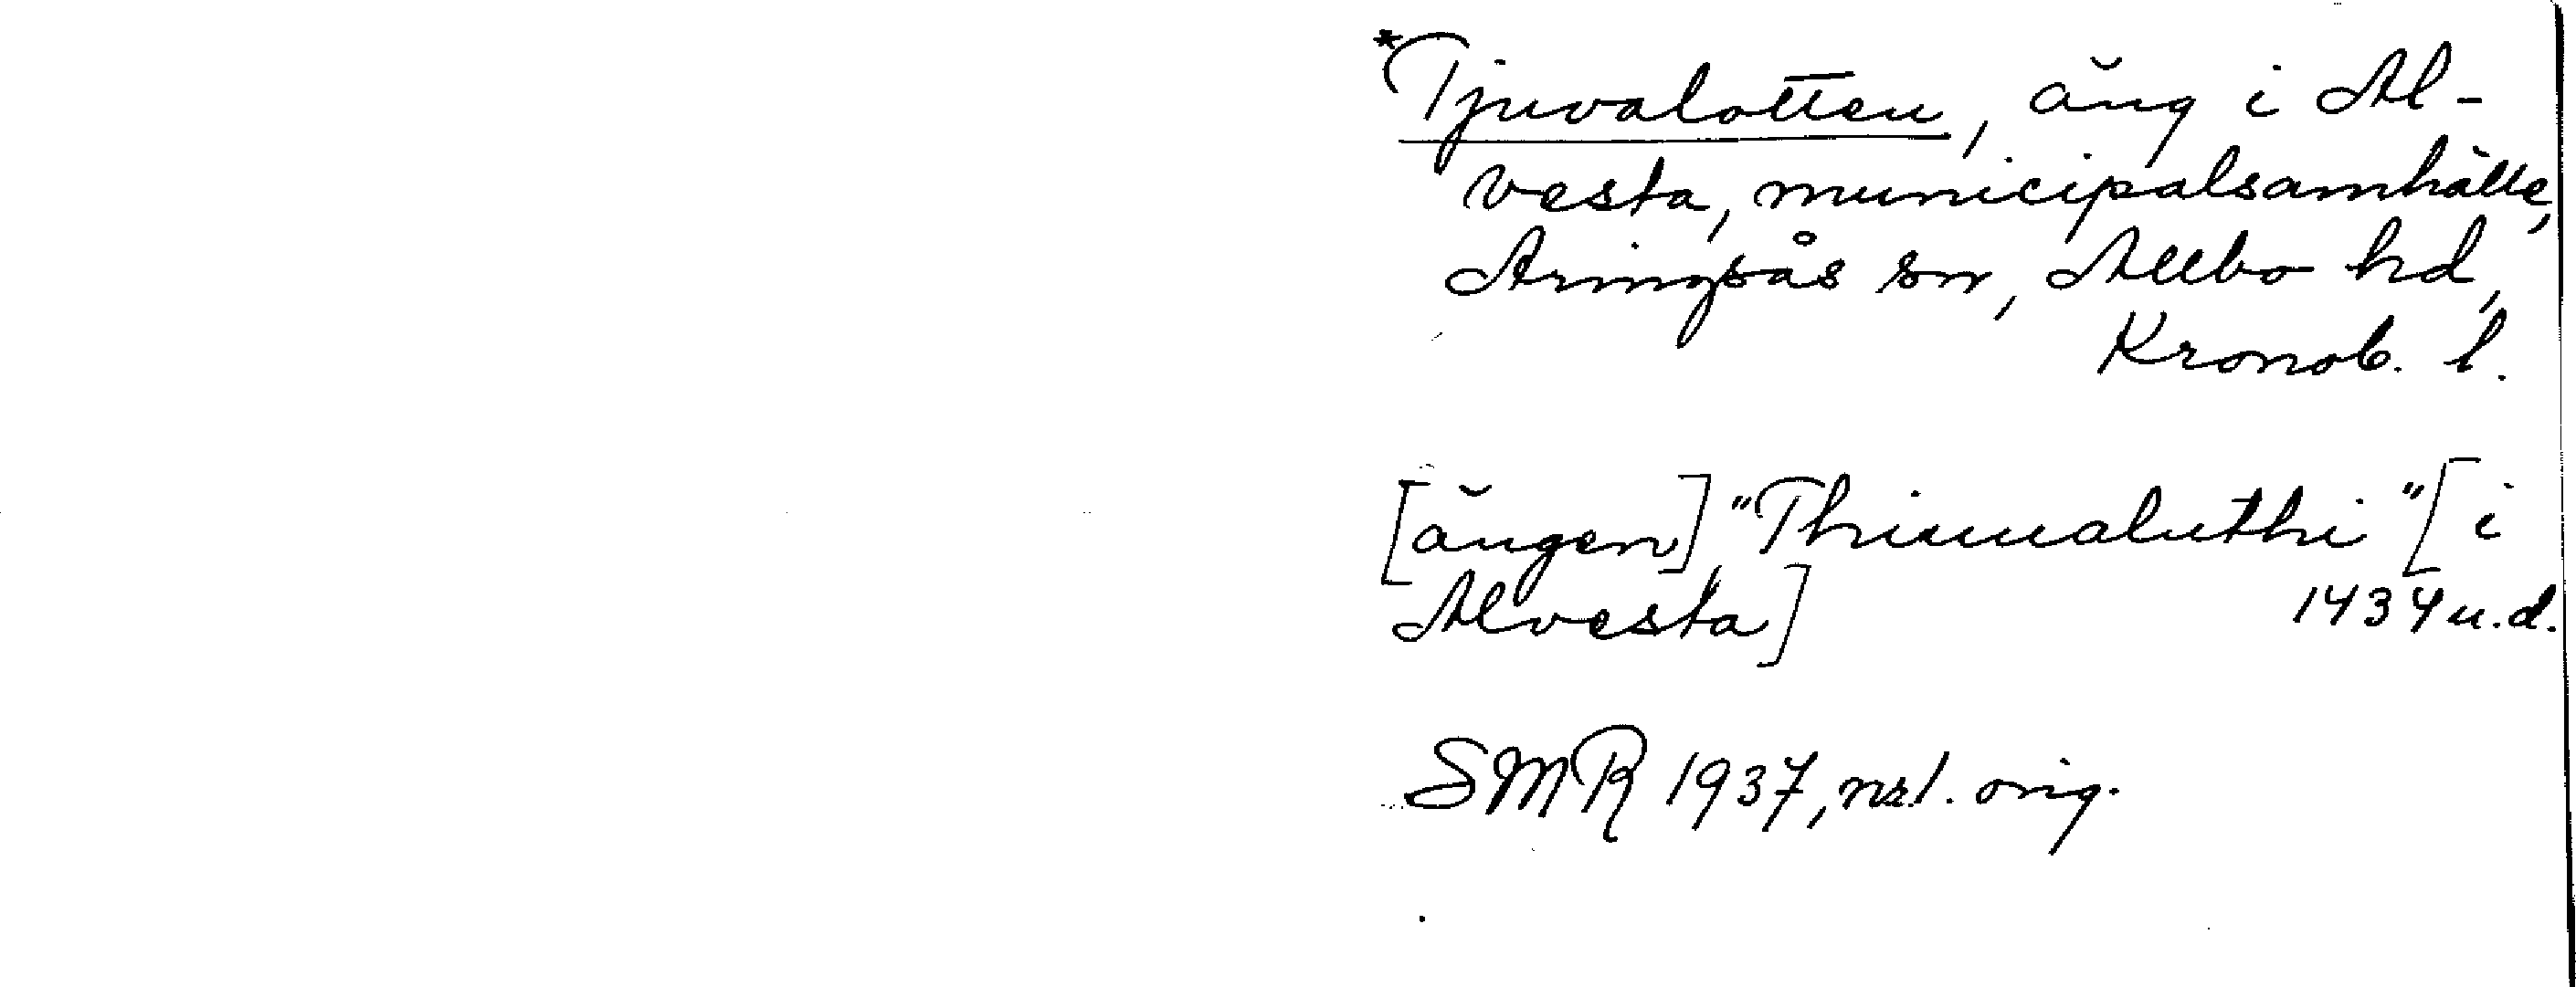 *Tjuvalotten, äng i Al-
vesta, municipalsamhälle,
Aringsås sn, Allbo hd,
Kronob. l.
[ängen] "Thiuualuthi" [i
Alvesta] 1434 u.d.
SMR 1937, nr 1. orig.